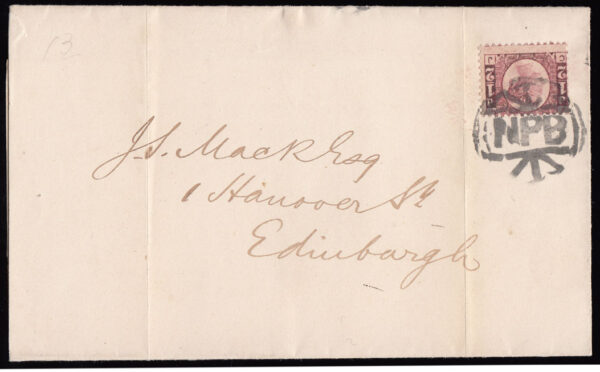 13
NPB
J. S. Mack Esq
1 Hanover St
Edinburgh